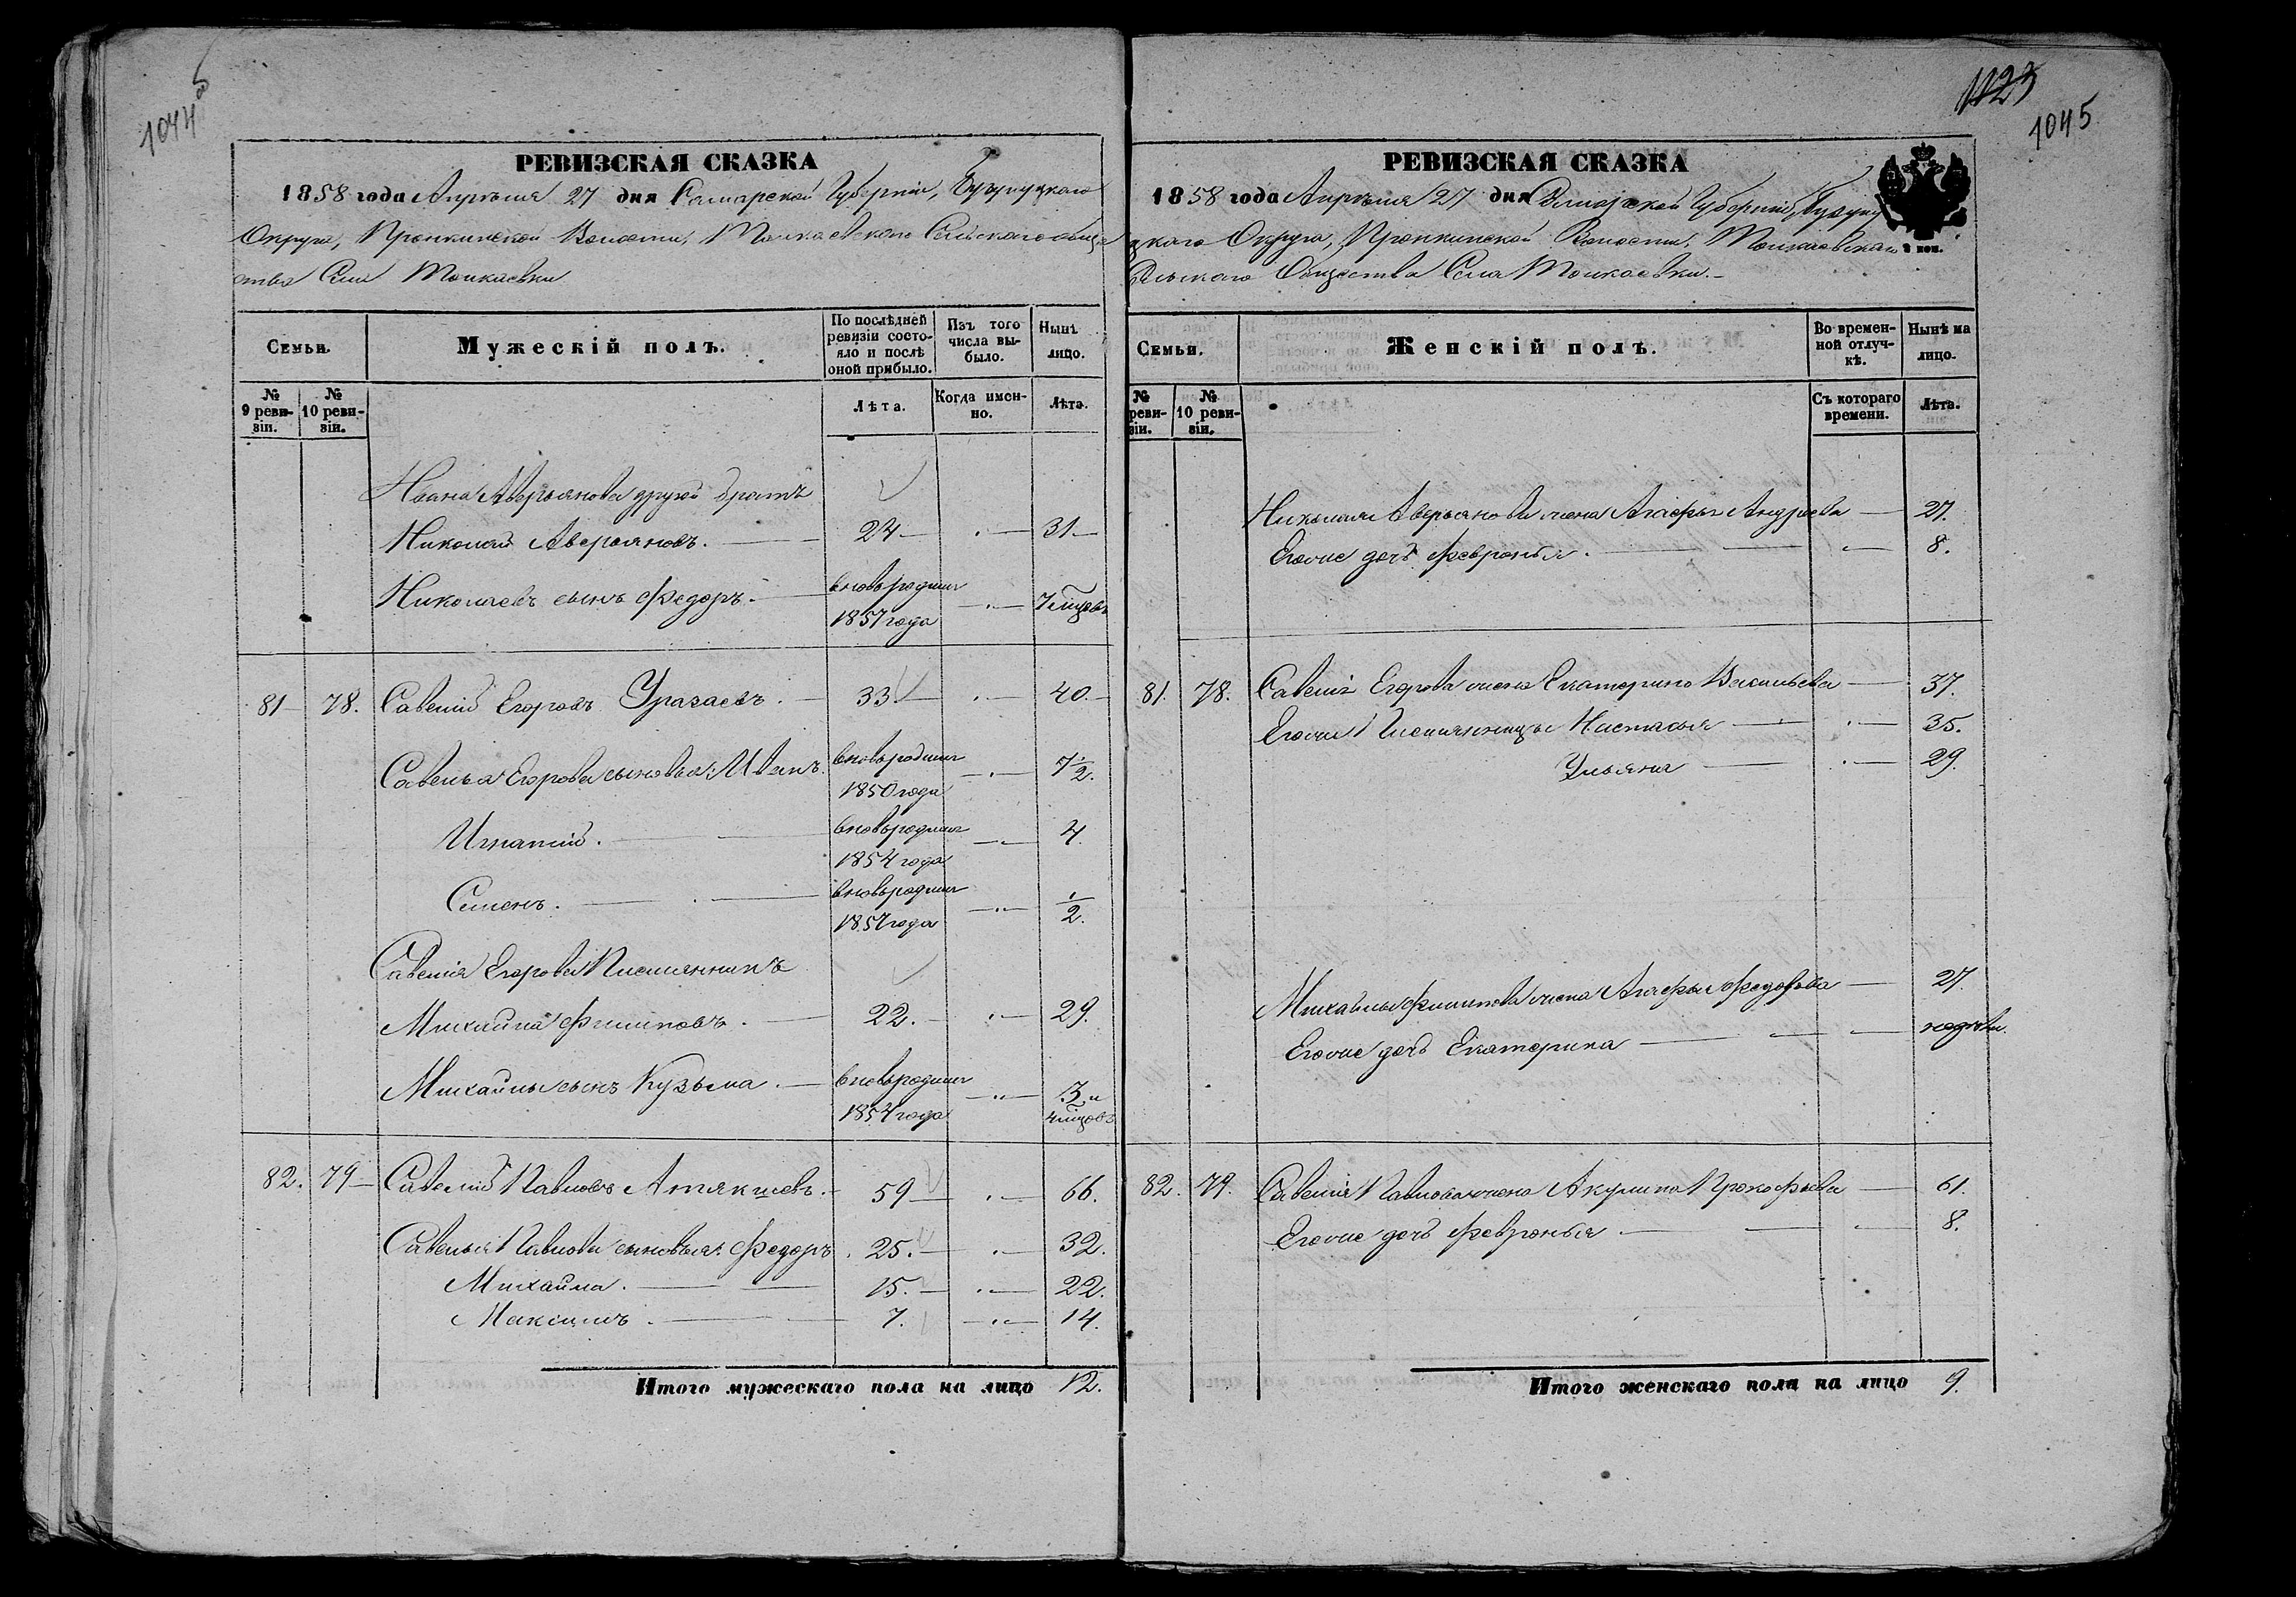 1044 об
РЕВИЗСКАЯ СКАЗКА
1858 года Апрѣля 27 дня Самарской Губерніи, Бузулуцкаго
Округа, Пронкинской Волости, Толкаевскаго Сельскаго обще
ства Села Толкаевки
Семьи.
Мужескій полъ.
По послѣдней ревизіи состояло и послѣ оной прибыло.
Изъ того числа выбыло.
Нынѣ лицо.
№ 9 ревизіи.
№ 10 ревизіи.
Лѣта.
Когда именно.
Лѣта.
Ивана Аверьянова другой братъ
Николай Аверьяновъ. 24 31
Николаевъ сынъ Федоръ. вновьродил 1857 года 7 мѣцовъ
81 78. Савелий Егоровъ Уразаевъ. 33 40.
Савелья Егорова сыновья: Иванъ. вновьродил 1850 года 7 1/2.
Игнатий. вновьродил 1854 года 4.
Семенъ. вновьродил 1857 года 1/2.
Савелія Егорова Племянникъ
Михайла Филиповъ. 22. 29.
Михайлы сынъ Кузьма. вновьродил 1854 года 3 и 4 мѣцовъ
82. 79 Савелий Павловъ Атякшевъ. 59 66.
Савелья Павлова сыновья: Федоръ. 25. 32.
Михайла. 15. 22.
Максимъ. 7. 14.
Итого мужескаго пола на лицо 12.
1123
1045
РЕВИЗСКАЯ СКАЗКА
1858 года Апрѣля 27 дня Самарской Губерніи, Бузулу
цкаго Округа, Пронкинской Волости, Толкаевскаго
Сельскаго Общества Села Толкаевки.
Семьи.
Женскій полъ.
Во временной отлучкѣ.
Нынѣ на лицо.
№ реви-зіи.
№ 10 ревизіи.
Съ котораго времени.
Лѣта.
Николая Аверьянова жена Агафья Андреева 27.
Егоже дочь Февронья. 8.
81. 78. Савелія Егорова жена Екатерина Васильева 37.
Егоже Племянницы Настасья 35.
Ульяна 29.
Михайлы Филипова жена Агафья Федорова 27.
Егоже дочь Екатерина недѣли.
82. 79. Савелія Павлова жена Акулина Прокофьева 61.
Егоже дочь Февронья. 8.
Итого женскаго пола на лицо 9.